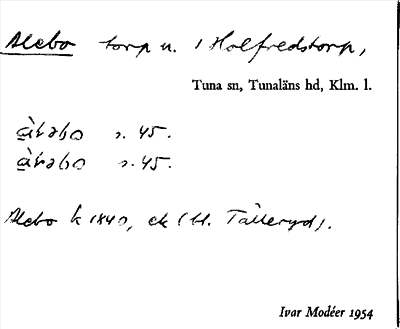 Alebo torp u. 1 Holfredstorp,
Tuna sn, Tunaläns hd, Klm. l.
s. 45.
s. 45.
Alebo k 1840, ek (bl. Tälleryd).
Ivar Modéer 1954